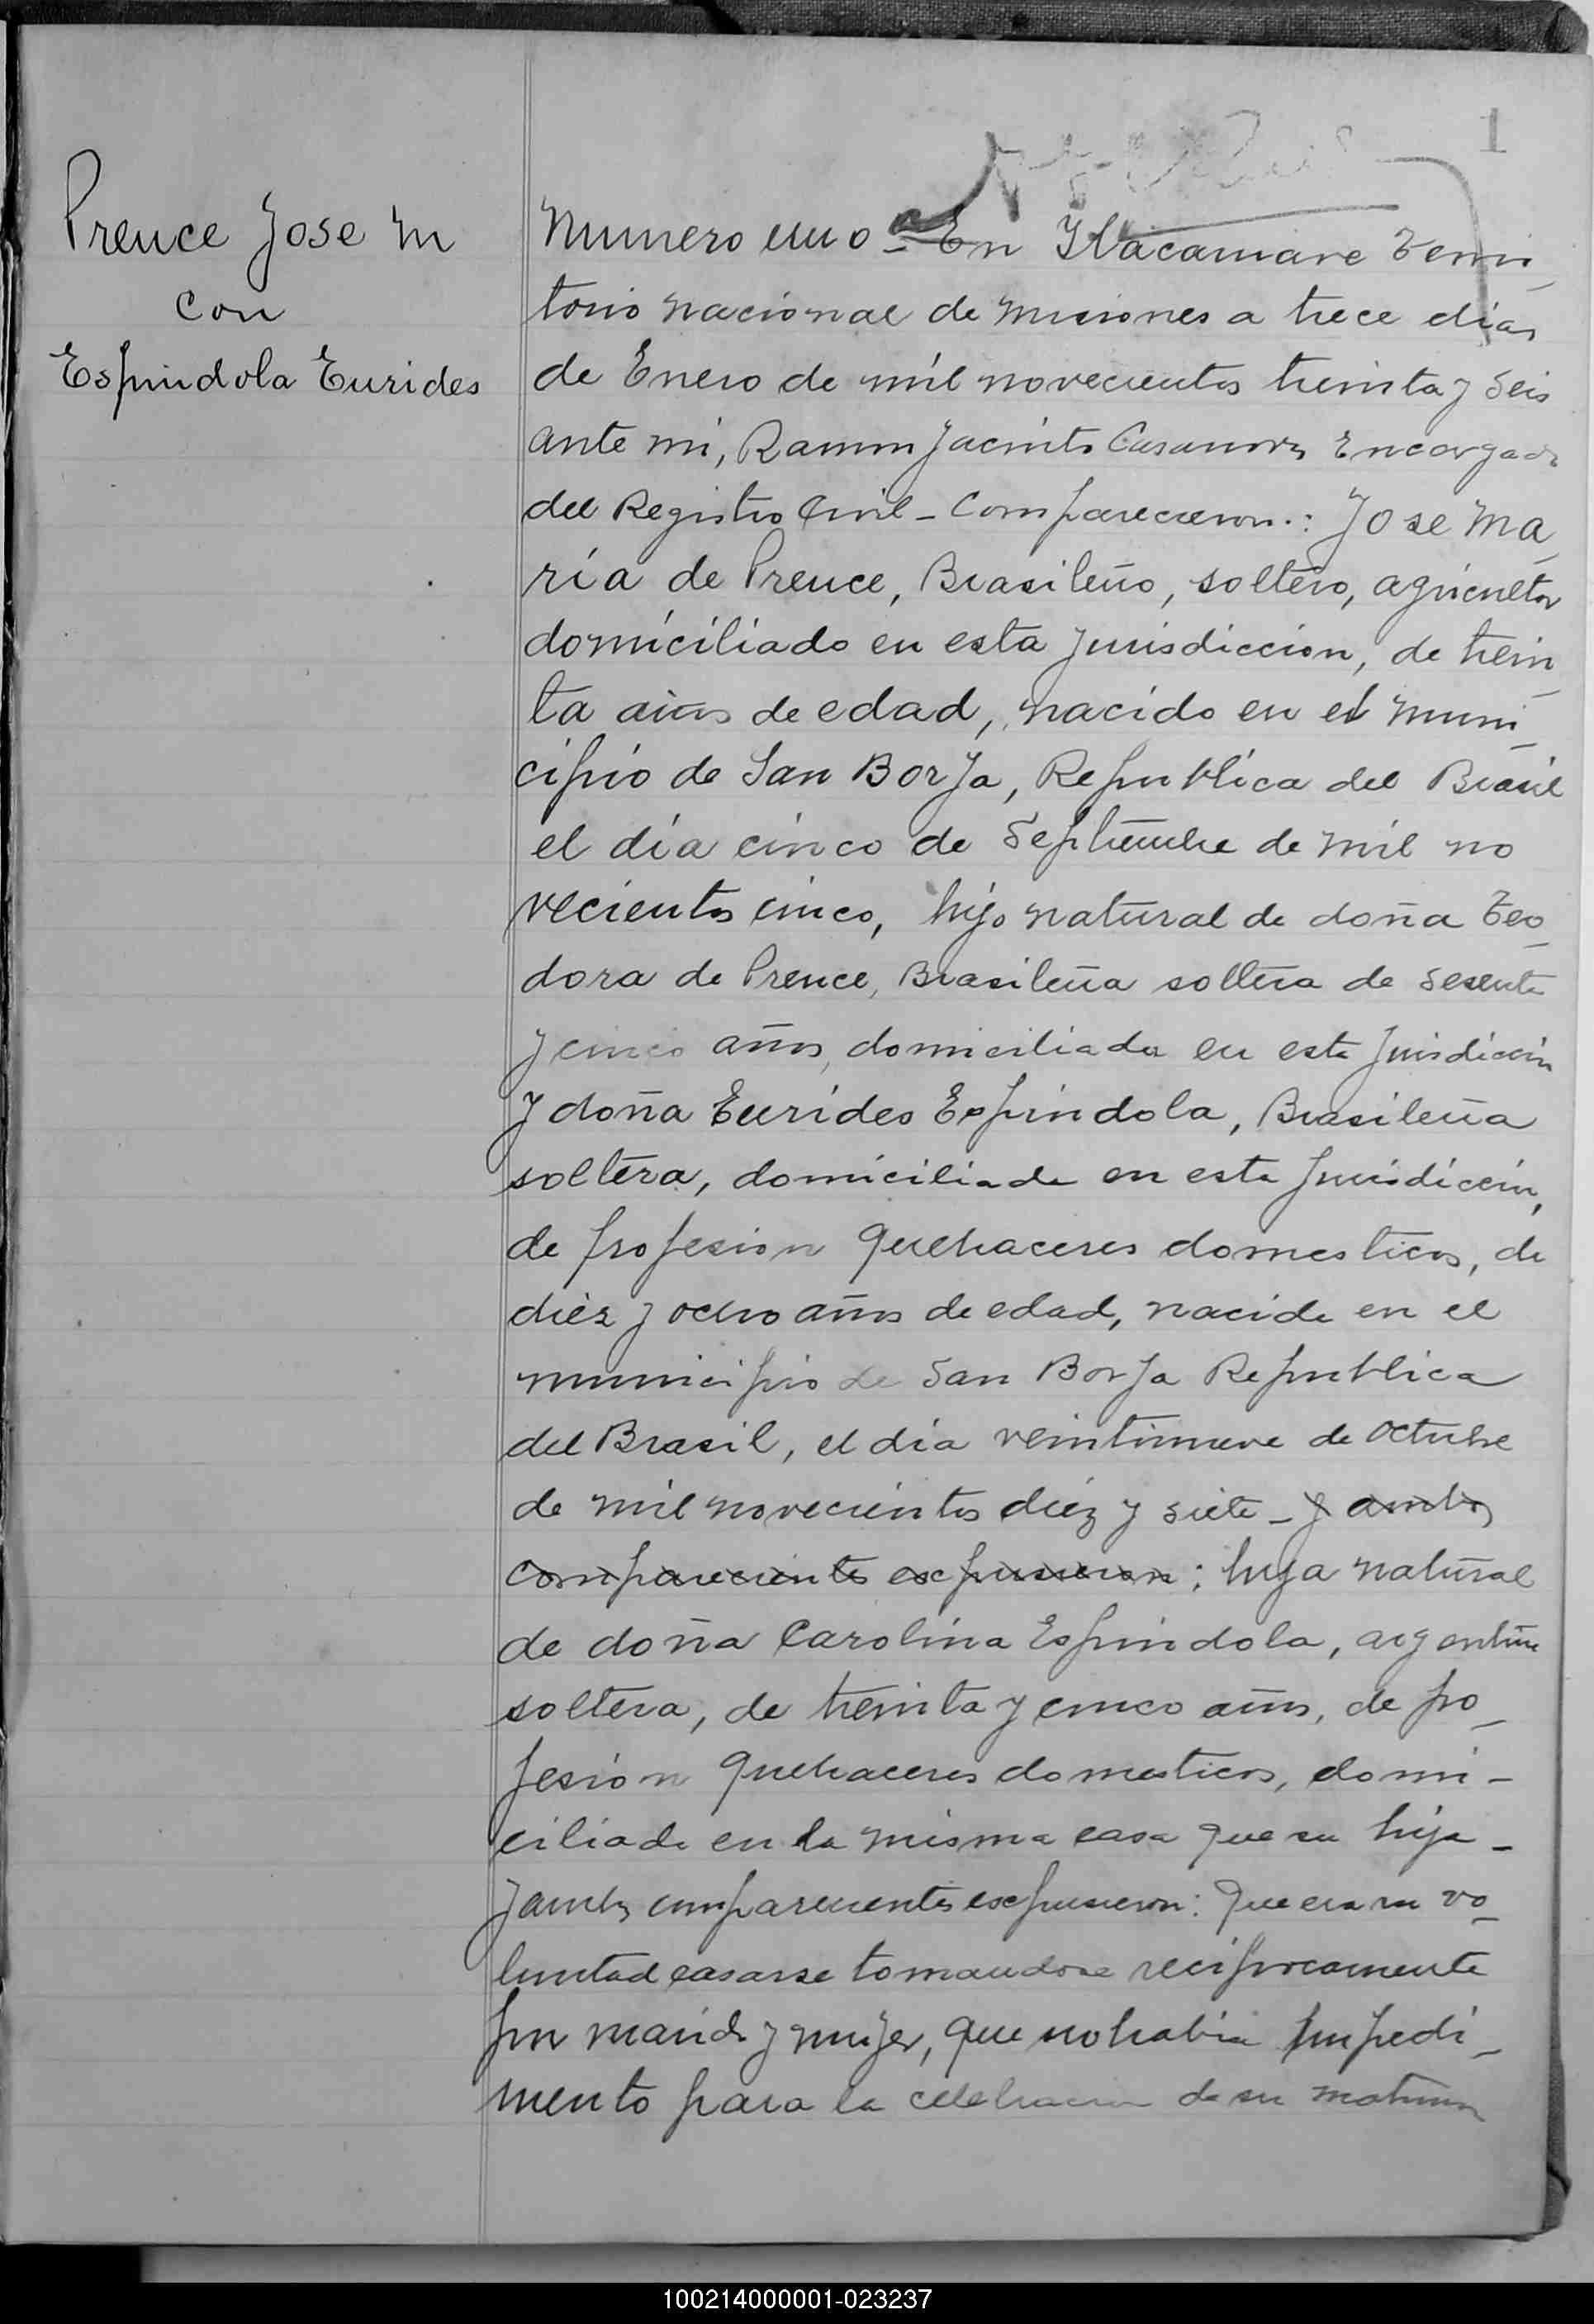 1
Prence Jose M
con
Espindola Eurides
Numero uno - En Itacaruare Terri_
torio nacional de Misiones a trece dias
de Enero de mil novecientos treinta y seis
ante mi, Ramon Jacinto Casanova Encargado
del Registro Civil - Comparecieron.: Jose Ma_
ría de Prence, Brasileño, soltero, agricultor
domiciliado en esta jurisdiccion, de trein_
ta años de edad, nacido en el muni_
cipio de San Borja, Republica del Brasil
el día cinco de Septiembre de mil no
vecientos cinco, hijo natural de doña Teo_
dora de Prence, Brasileña soltera de sesenta
y cinco años, domiciliada en esta Jurisdiccion
y doña Eurides Espindola, Brasileña
soltera, domiciliada en esta Jurisdiccion,
de profesion quehaceres domesticos, de
diez y ocho años de edad, nacida en el
municipio de San Borja Republica
del Brasil, el dia veintinueve de octubre
de mil novecientos diez y siete - y ambos
comparecientes expusieron: hija natural
de doña Carolina Espindola, argentina
soltera, de treinta y cinco años, de pro_
fesion quehaceres domesticos, domi-
ciliada en la misma casa que su hija -
y ambos comparecientes expusieron: que era su vo_
luntad casarse tomandose reciprocamente
por marido y mujer, que no habia Impedi_
mento para la celebracion de su matrimo
100214000001-023237